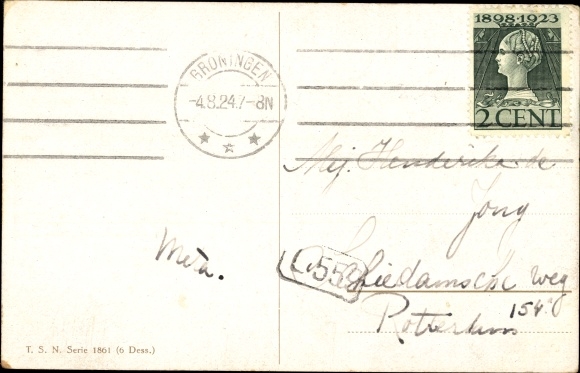 1898-1923
2 CENT
GRONINGEN
-4.8.24.7-8N
Mej. Henderika de
Jong
Schiedamsche weg
154
Rotterdam
Meta.
T. S. N. Serie 1861 (6 Dess.)